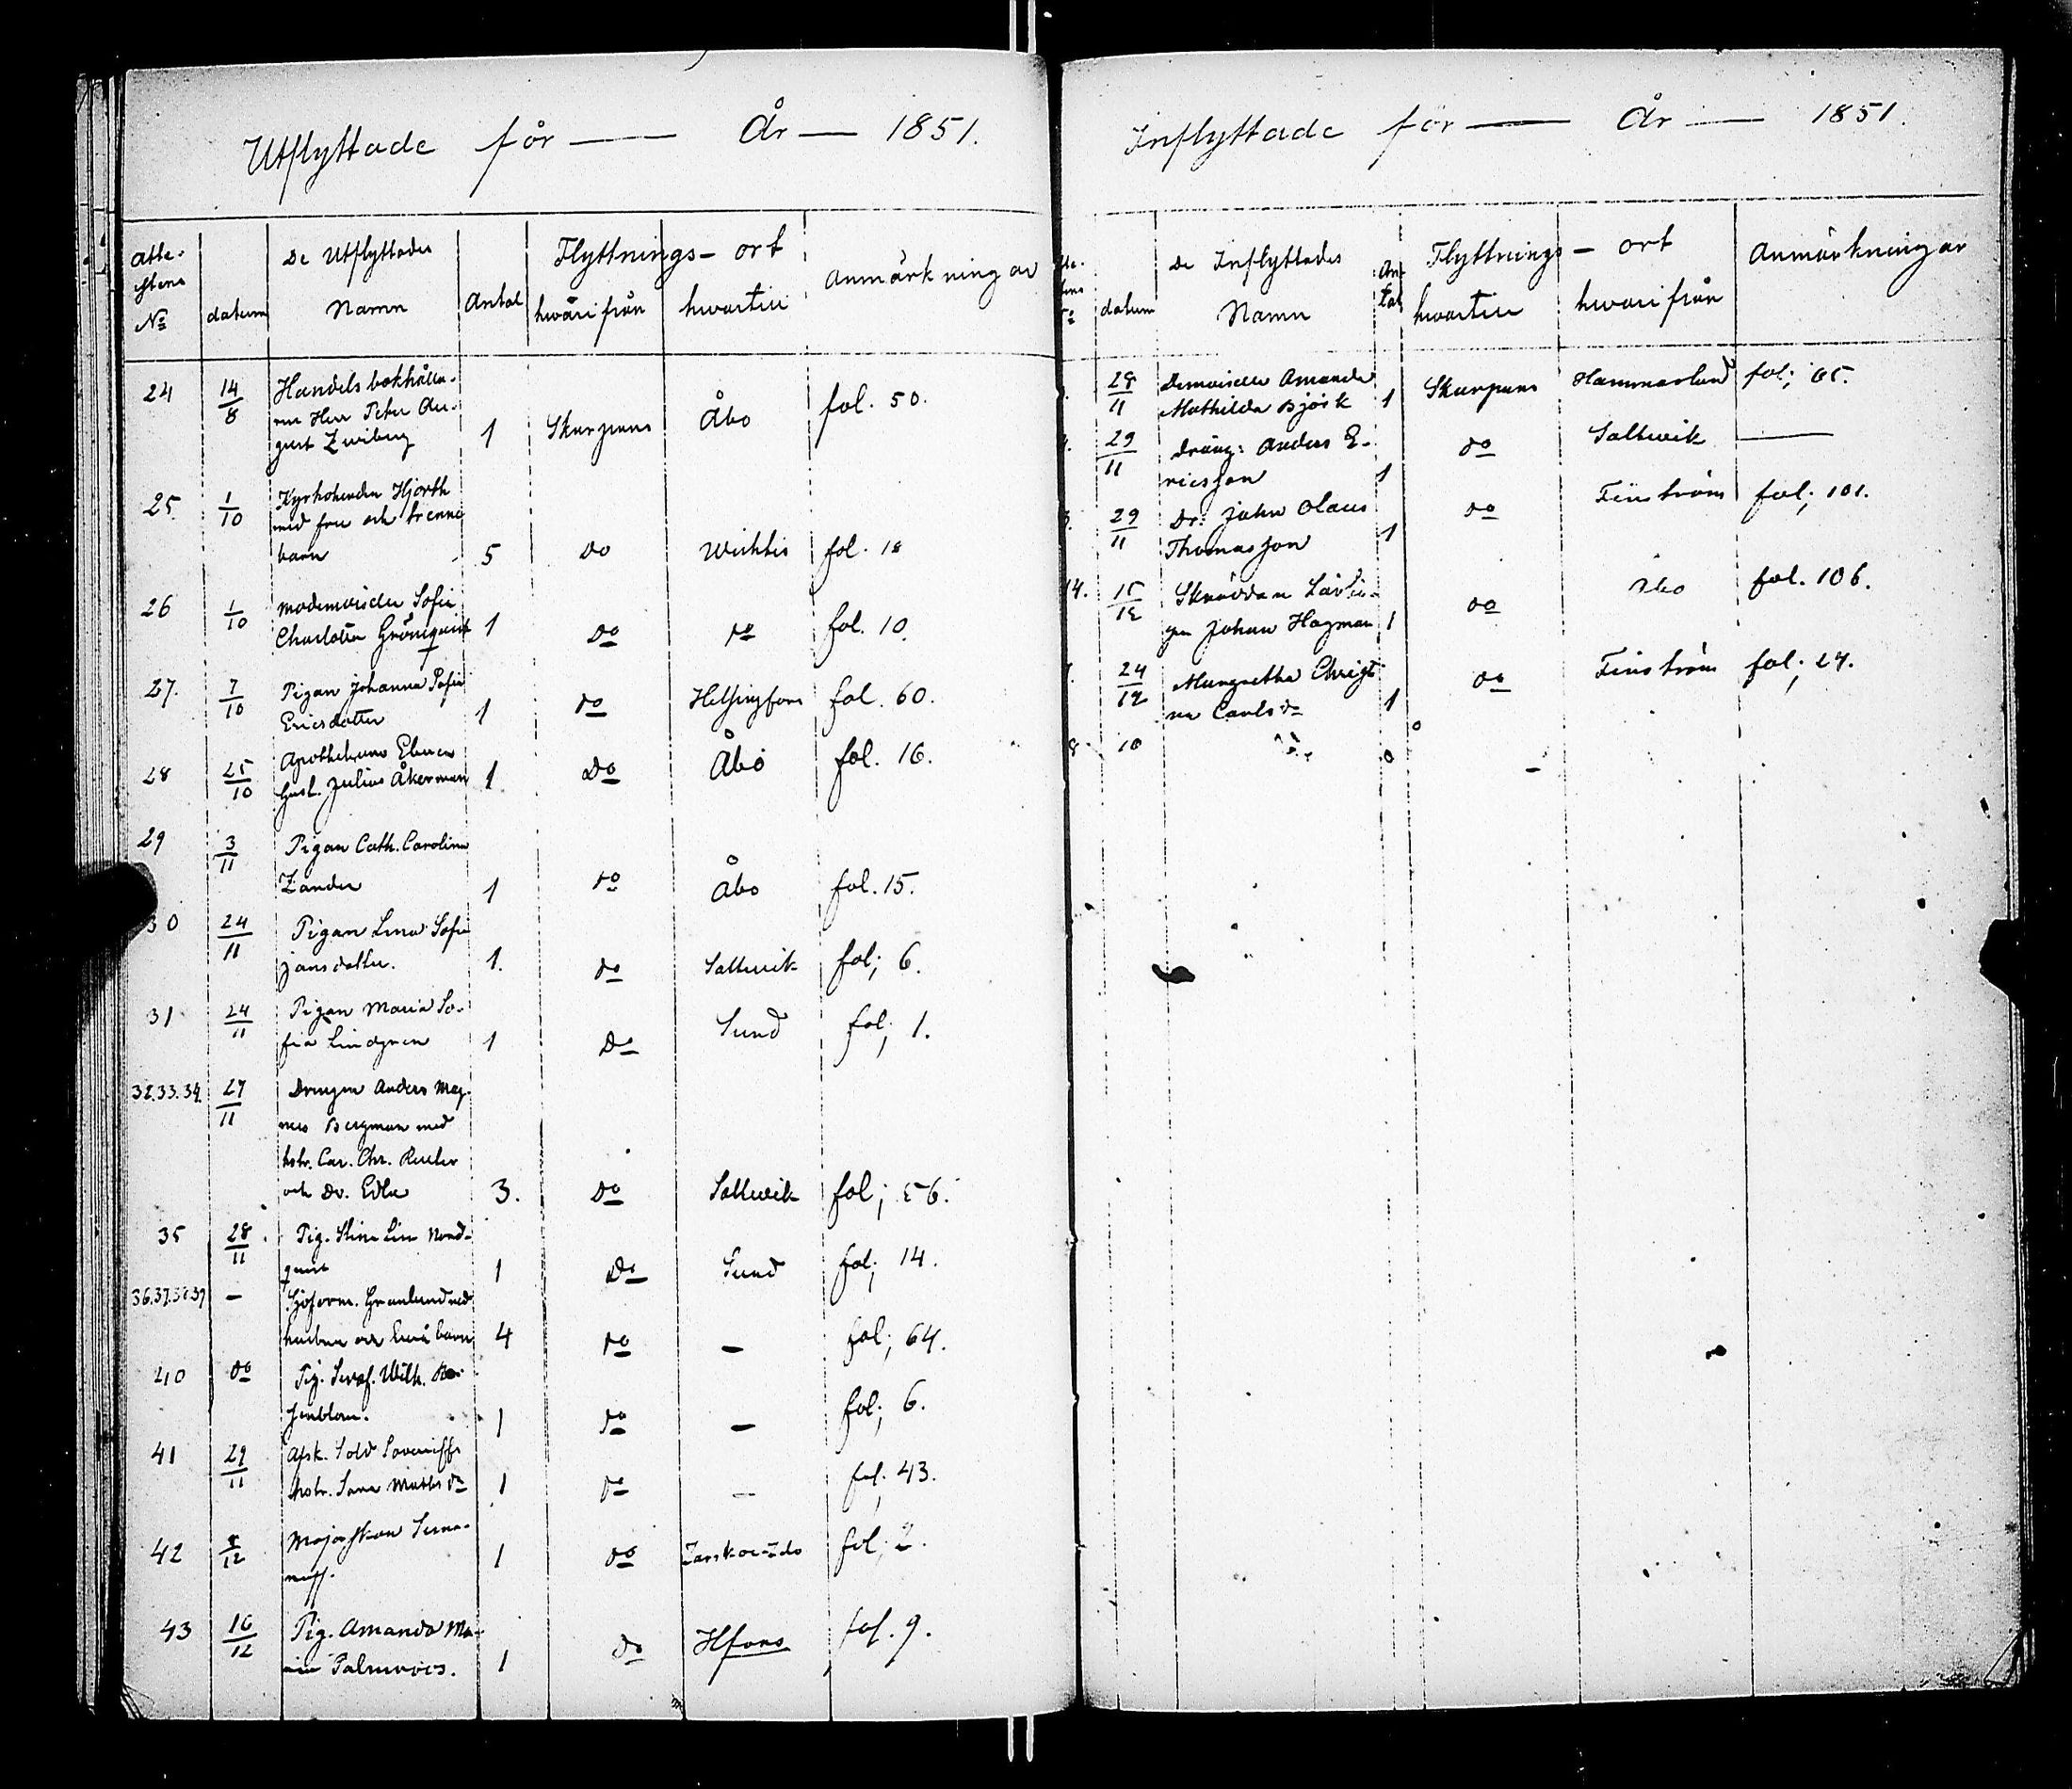 Utflyttade för — År — 1851.
Atte-
stens
No
datum
De Utflyttades
Namn
Antal
Flyttnings-ort
hwarifrån
hwartill
Anmärkningar
24 14/8 Handelsbokhålla-
ren Herr Peter Au-
gust 1 Skarpans Åbo fol. 50.
25 1/10 Kyrkoherden Hjorth
med fru och trenne
barn 5 do Wichtis fol. 18
26 1/10 Mademoiselle Sofia
Charlotta Grönqvist 1 do do fol. 10.
27. 7/10 Pigan Johanna Sofia
Ericsdotter 1 do Helsingfors fol. 60.
28 25/10 Apothekare Eleven
Gust. Julius Åkerman 1 do Åbo fol. 16.
29 3/11 Pigan Cath. Carolina
Zander 1 do Åbo fol. 15.
30 24/11 Pigan Lina Sofia
Jansdotter. 1. do Saltwik fol; 6.
31 24/11 Pigan Maria So-
fia Lindgren 1 do Sund fol; 1.
32.33.34. 27/11 Drengen Anders Mag-
nus Bergman med
hstr. Car. Chr.
och dr. Edla 3. do Saltwik fol; 56.
35 28/11 Pig. Stina Lisa Nord-
qvist 1 do Sund fol; 14.
36.37.38.39 — Sjöform. Granlund med
hustru och två barn 4 do — fol; 64.
40 do Pig. Seraf. Wilh. Ro-
senblom. 1 do — fol; 6.
41 29/11 Afsk. Sold
hstr. Sara Matts dr 1 do — fol. 43.
42 /12 Majorskan
1 do Zarskoe-Zelo fol; 2.
43 16/12 Pig. Amanda Ma-
ria Palmroos. 1 do Hfors fol. 9.
Inflyttade för — År — 1851.
datum
De Inflyttades
Namn
An-
tal
Flyttnings-ort
hwartill
hwarifrån
Anmärkningar
28/11 Demoiselle Amanda
Mathilda Björk 1 Skarpans Hammarland fol; 65.
29/11 Dräng: Anders E-
ricsson 1 do Saltwik —
29/11 Dr: Johan Olaus
Thomasson 1 do Finström fol; 101.
14. 15/12 Skräddare Lärlin-
gen Johan Hagman 1 do Åbo fol. 106.
24/12 Margretha Christi
na Carls dr 1 do Finström fol; 24.
8 10